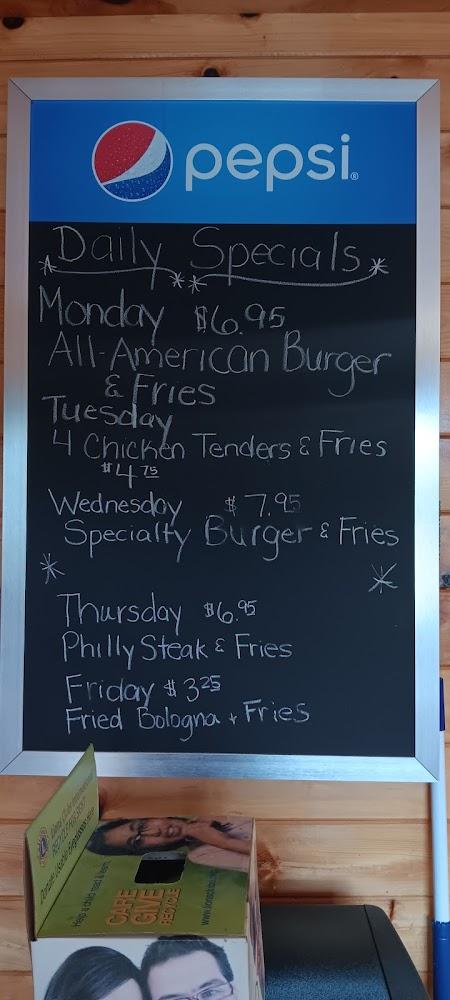 pepsi®
Daily Specials
Monday $6.95
All-American Burger
& Fries
Tuesday
4 Chicken Tenders & Fries
$4.75
Wednesday $7.95
Specialty Burger & Fries
Thursday $6.95
Philly Steak & Fries
Friday $3.25
Fried Bologna + Fries
Help a child read & learn
CARE
GIVE
RECYCLE